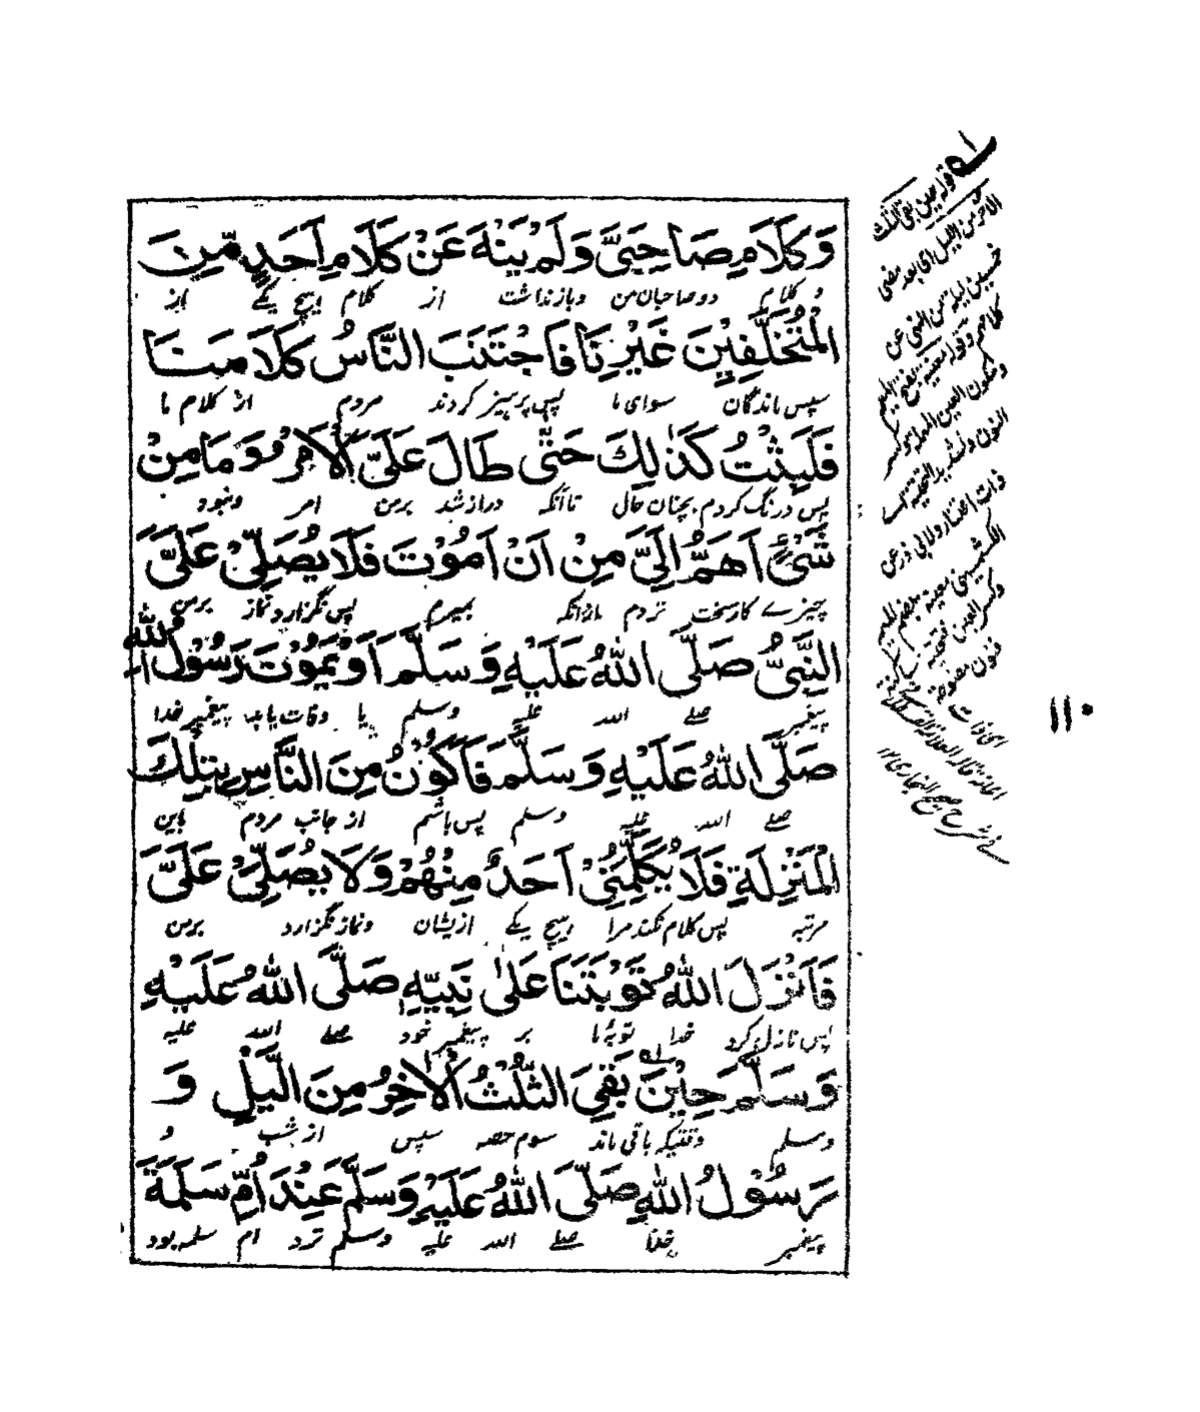 وَكَلَامِ صَاحِبَيَّ وَلَمْ يَنْهَ عَنْ كَلَامِ اَحَدٍ مِّنَ
و کلام دو صاحبان من و باز نداشت از کلام ہیچ یکے از
الْمُتَخَلَّفِيْنَ غَيْرِنَا فَاجْتَنَبَ النَّاسُ كَلَامَنَا
سپس ماندگان سوای ما پس پرہیز کردند مردم از کلام ما
فَلَبِثْتُ كَذٰلِكَ حَتّٰى طَالَ عَلَيَّ الْاَمْرُ وَمَا مِنْ
پس درنگ کردم ہمچنان حال تا آنکہ دراز شد برمن امر ونبود
شَيْءٍ اَهَمُّ اِلَيَّ مِنْ اَنْ اَمُوْتَ فَلَا يُصَلِّيْ عَلَيَّ
چیزے کارسخت نزدم ازانکہ بمیرم پس نگزارد نماز برمن
النَّبِيُّ صَلَّى اللهُ عَلَيْهِ وَسَلَّمَ اَوْ يَمُوْتَ رَسُوْلُ اللهِ
پیغمبر صلے اللہ علیہ وسلم یا وفات یابد پیغمبر خدا
صَلَّى اللهُ عَلَيْهِ وَسَلَّمَ فَاَكُوْنُ مِنَ النَّاسِ بِتِلْكَ
صلے اللہ علیہ وسلم پس باشم از جانب مردم باین
الْمَنْزِلَةِ فَلَا يُكَلِّمُنِيْ اَحَدٌ مِنْهُمْ وَلَا يُصَلِّيْ عَلَيَّ
مرتبہ پس کلام نکند مرا ہیچ یکے ازیشان ونماز نگزارد برمن
فَاَنْزَلَ اللهُ تَوْبَتَنَا عَلٰى نَبِيِّهٖ صَلَّى اللهُ عَلَيْهِ
پس نازل کرد خدا توبۂ ما بر پیغمبر خود صلے اللہ علیہ
وَسَلَّمَ حِيْنَ بَقِيَ الثُّلُثُ الْاٰخِرُ مِنَ الَّيْلِ وَ
وسلم وقتیکہ باقی ماند سوم حصہ سپس از شب و
رَسُوْلُ اللهِ صَلَّى اللهُ عَلَيْهِ وَسَلَّمَ عِنْدَ اُمِّ سَلَمَةَ
پیغمبر خدا صلے اللہ علیہ وسلم نزد ام سلمہ بود
قولہ حین بقی الثلث
الآخر من اللیل ای بعد مضی
خمسین لیلۃ من النہی عن
کلامہم وقولہ معنیۃ بفتح المیم
وسکون العین المہملۃ وکسر
النون وتشدید التحتیۃ
ذات اعتناء ولابی ذر عن
الکشمیہنی معینۃ بضم المیم
وکسر العین فتحتیۃ
فنون مفتوحۃ
ای ذات
اعانۃ قالہ العلامۃ القسطلانی
فی شرح صحیح البخاری ۱۲
۱۱۰